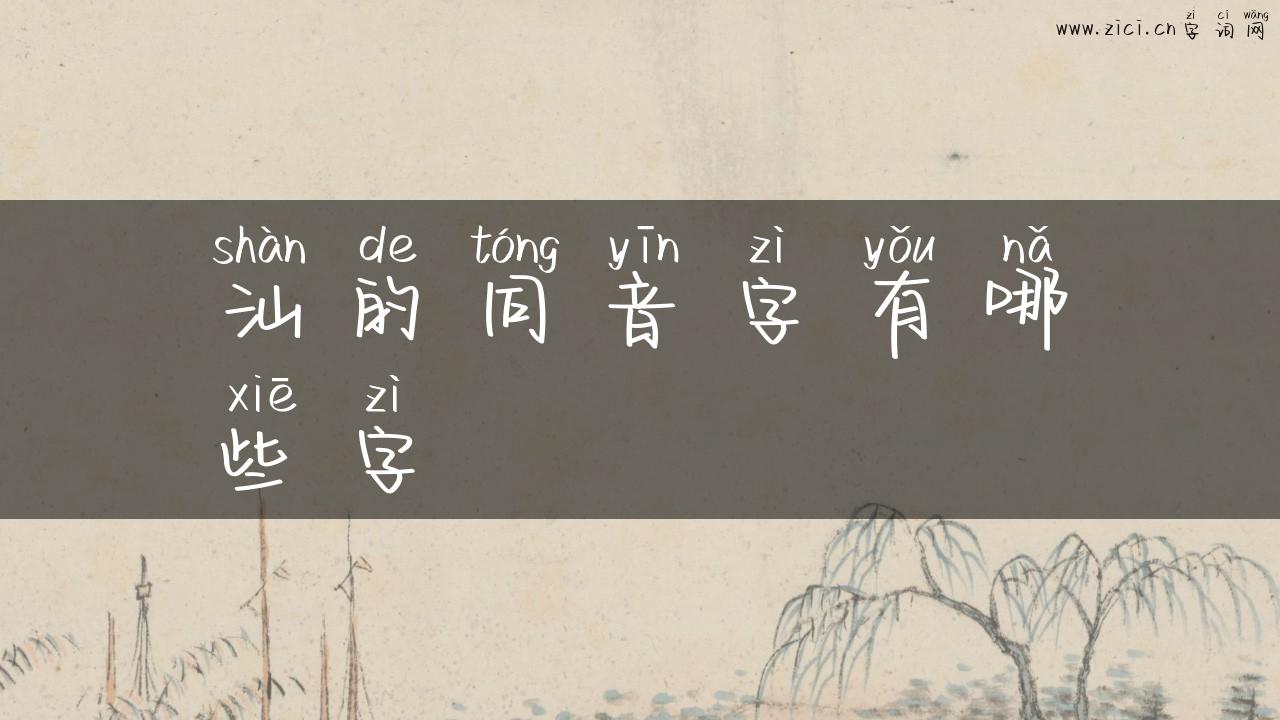 zì cí wǎng
www.zici.cn 字 词 网
shàn de tóng yīn zì yǒu nǎ
汕 的 同 音 字 有 哪
xiē zì
些 字